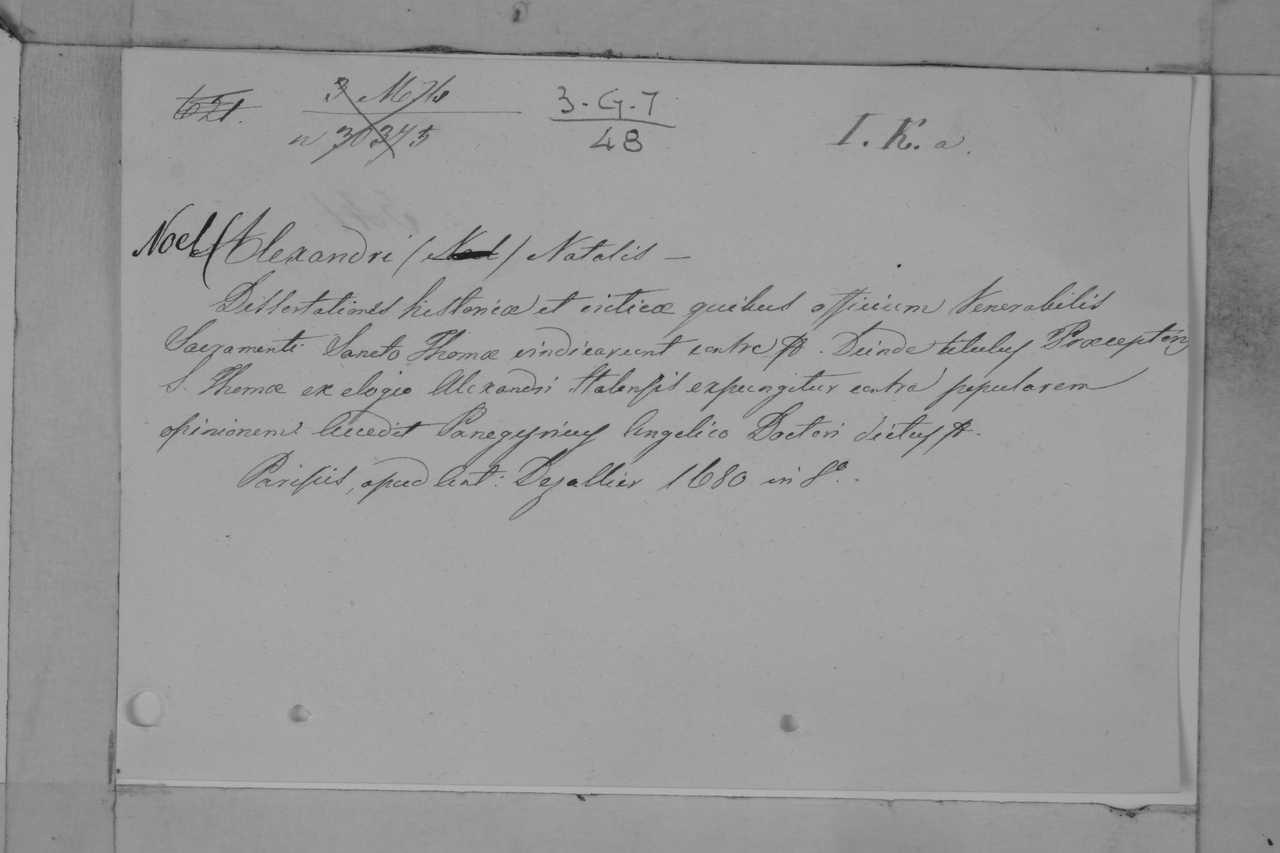 621. 3 M 7/8 3-G-7 I. K. a.
n 30375 48
Noel (Alexandri / Noel / Natalis —
Dissertationes historicæ et criticæ quibus officium Venerabilis
Sacramenti Sancto Thomæ vindicaverunt contra &. Deinde titulus Præceptoris
S. Thomæ ex elogio Alexandri Halensis expungitur contra popularem
opinionem. Accedit Panegyricus Angelico Doctori dictus &.
Parisiis, apud Ant: Dezallier 1680 in 8°.